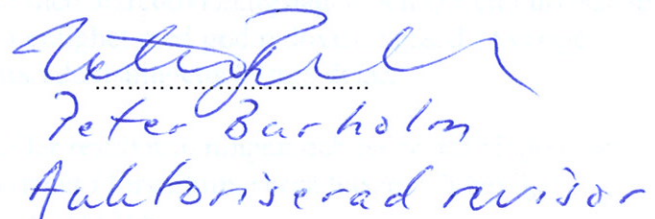 Peter Barholm
Auktoriserad revisor